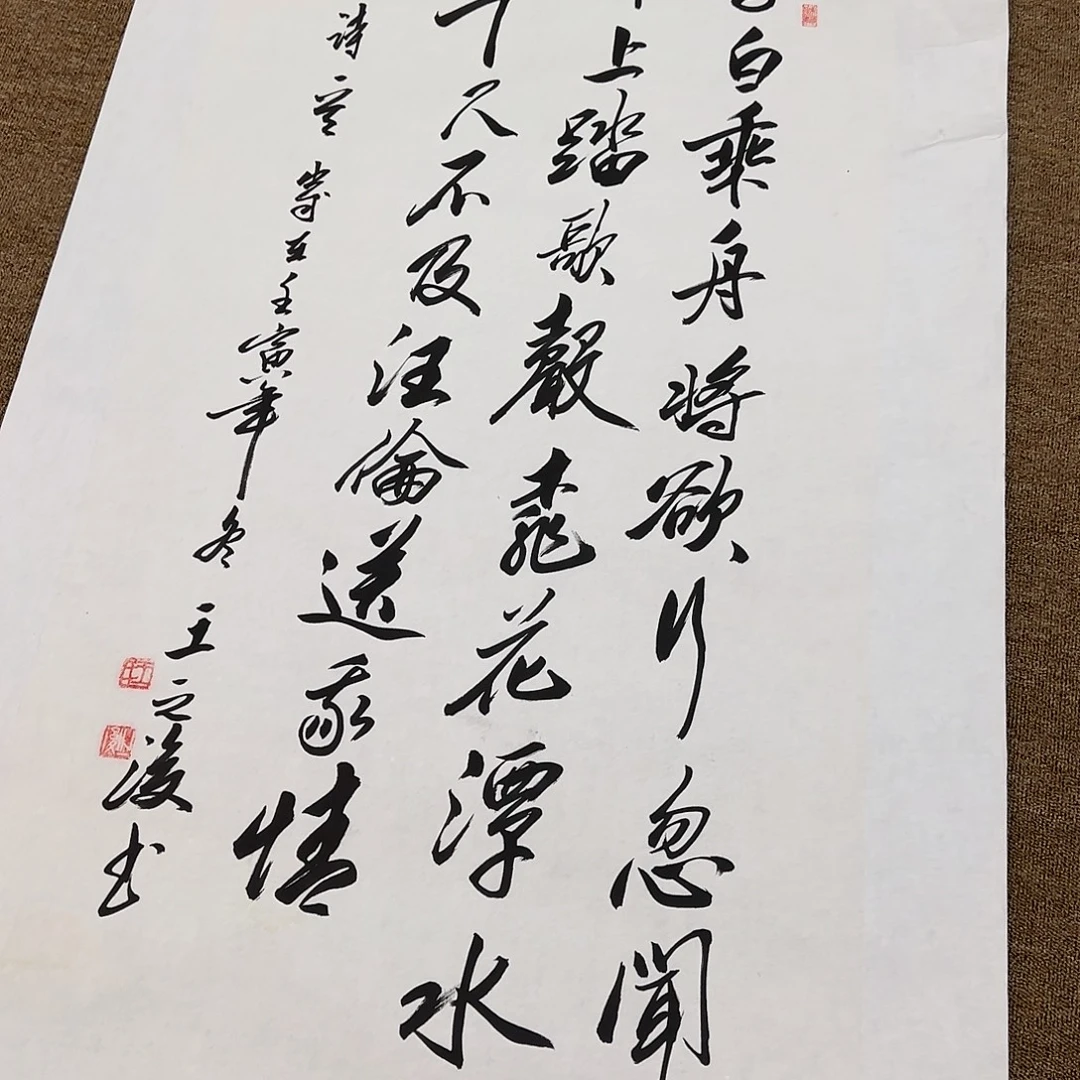 白乘舟将欲行忽聞
上踏歌聲桃花潭水
千尺不及汪倫送我情
詩一首 壬寅年冬 王之浚书